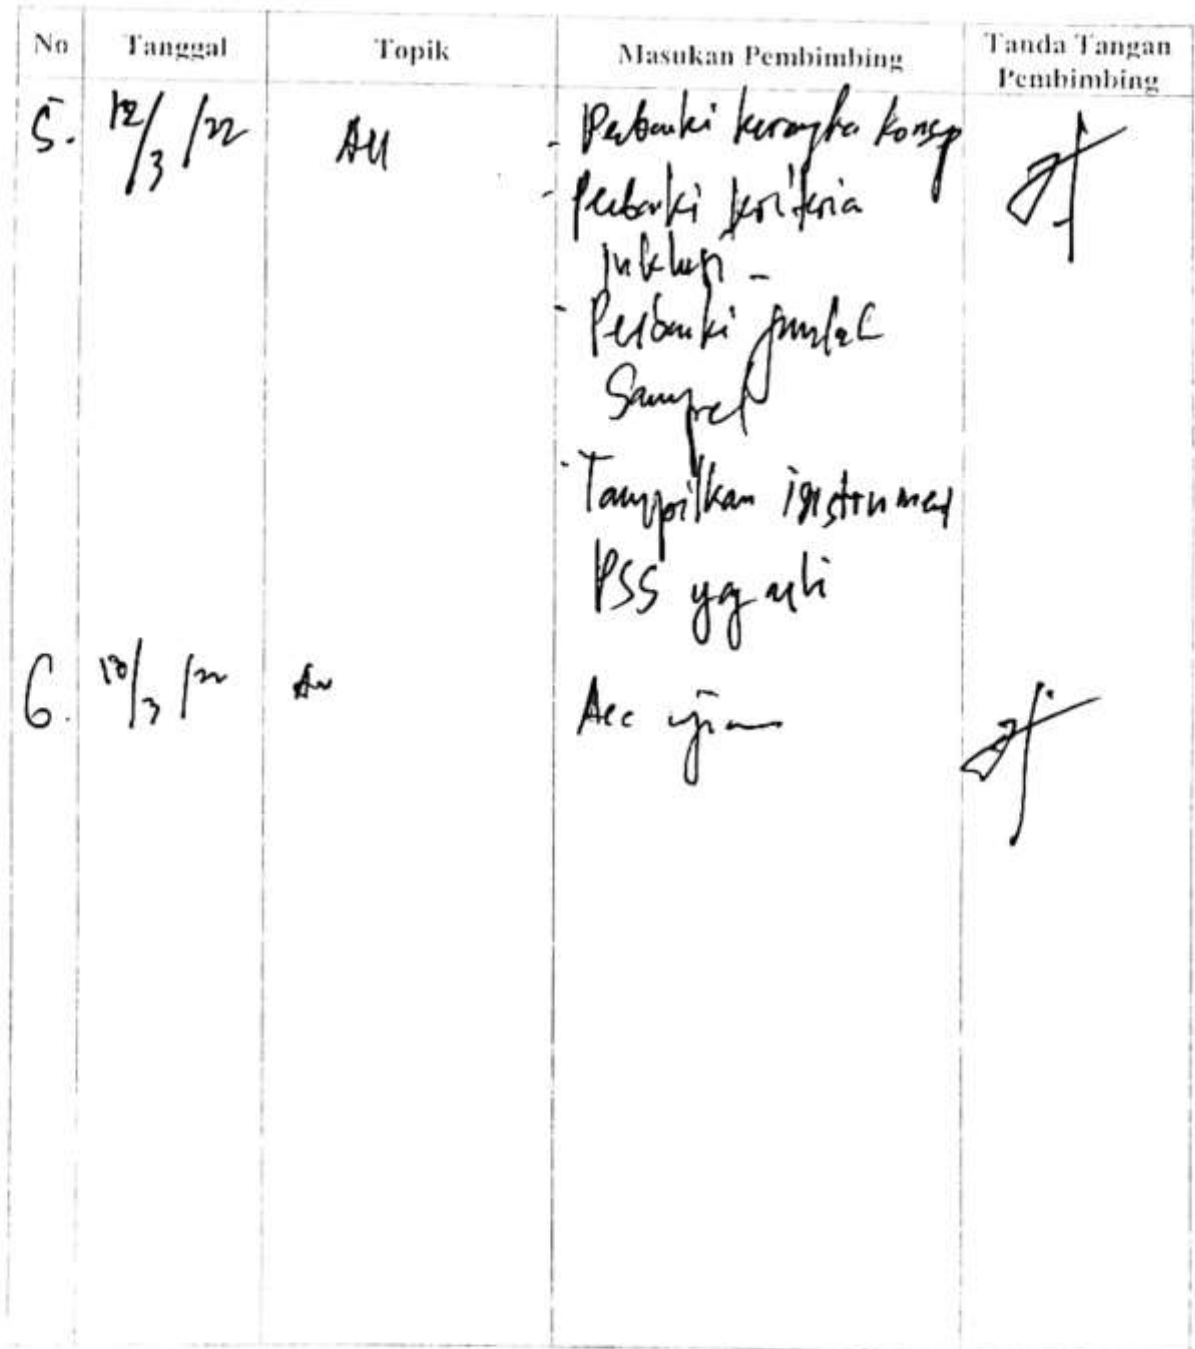 No Tanggal Topik Masukan Pembimbing Tanda Tangan Pembimbing
5. 12/3/22 All - Perbaiki kerangka konsep
- Perbaiki kriteria
inklusi -
- Perbaiki jumlah
Sampel
- Tampilkan instrumen
PSS yg asli
6. /3/22 Acc ujian